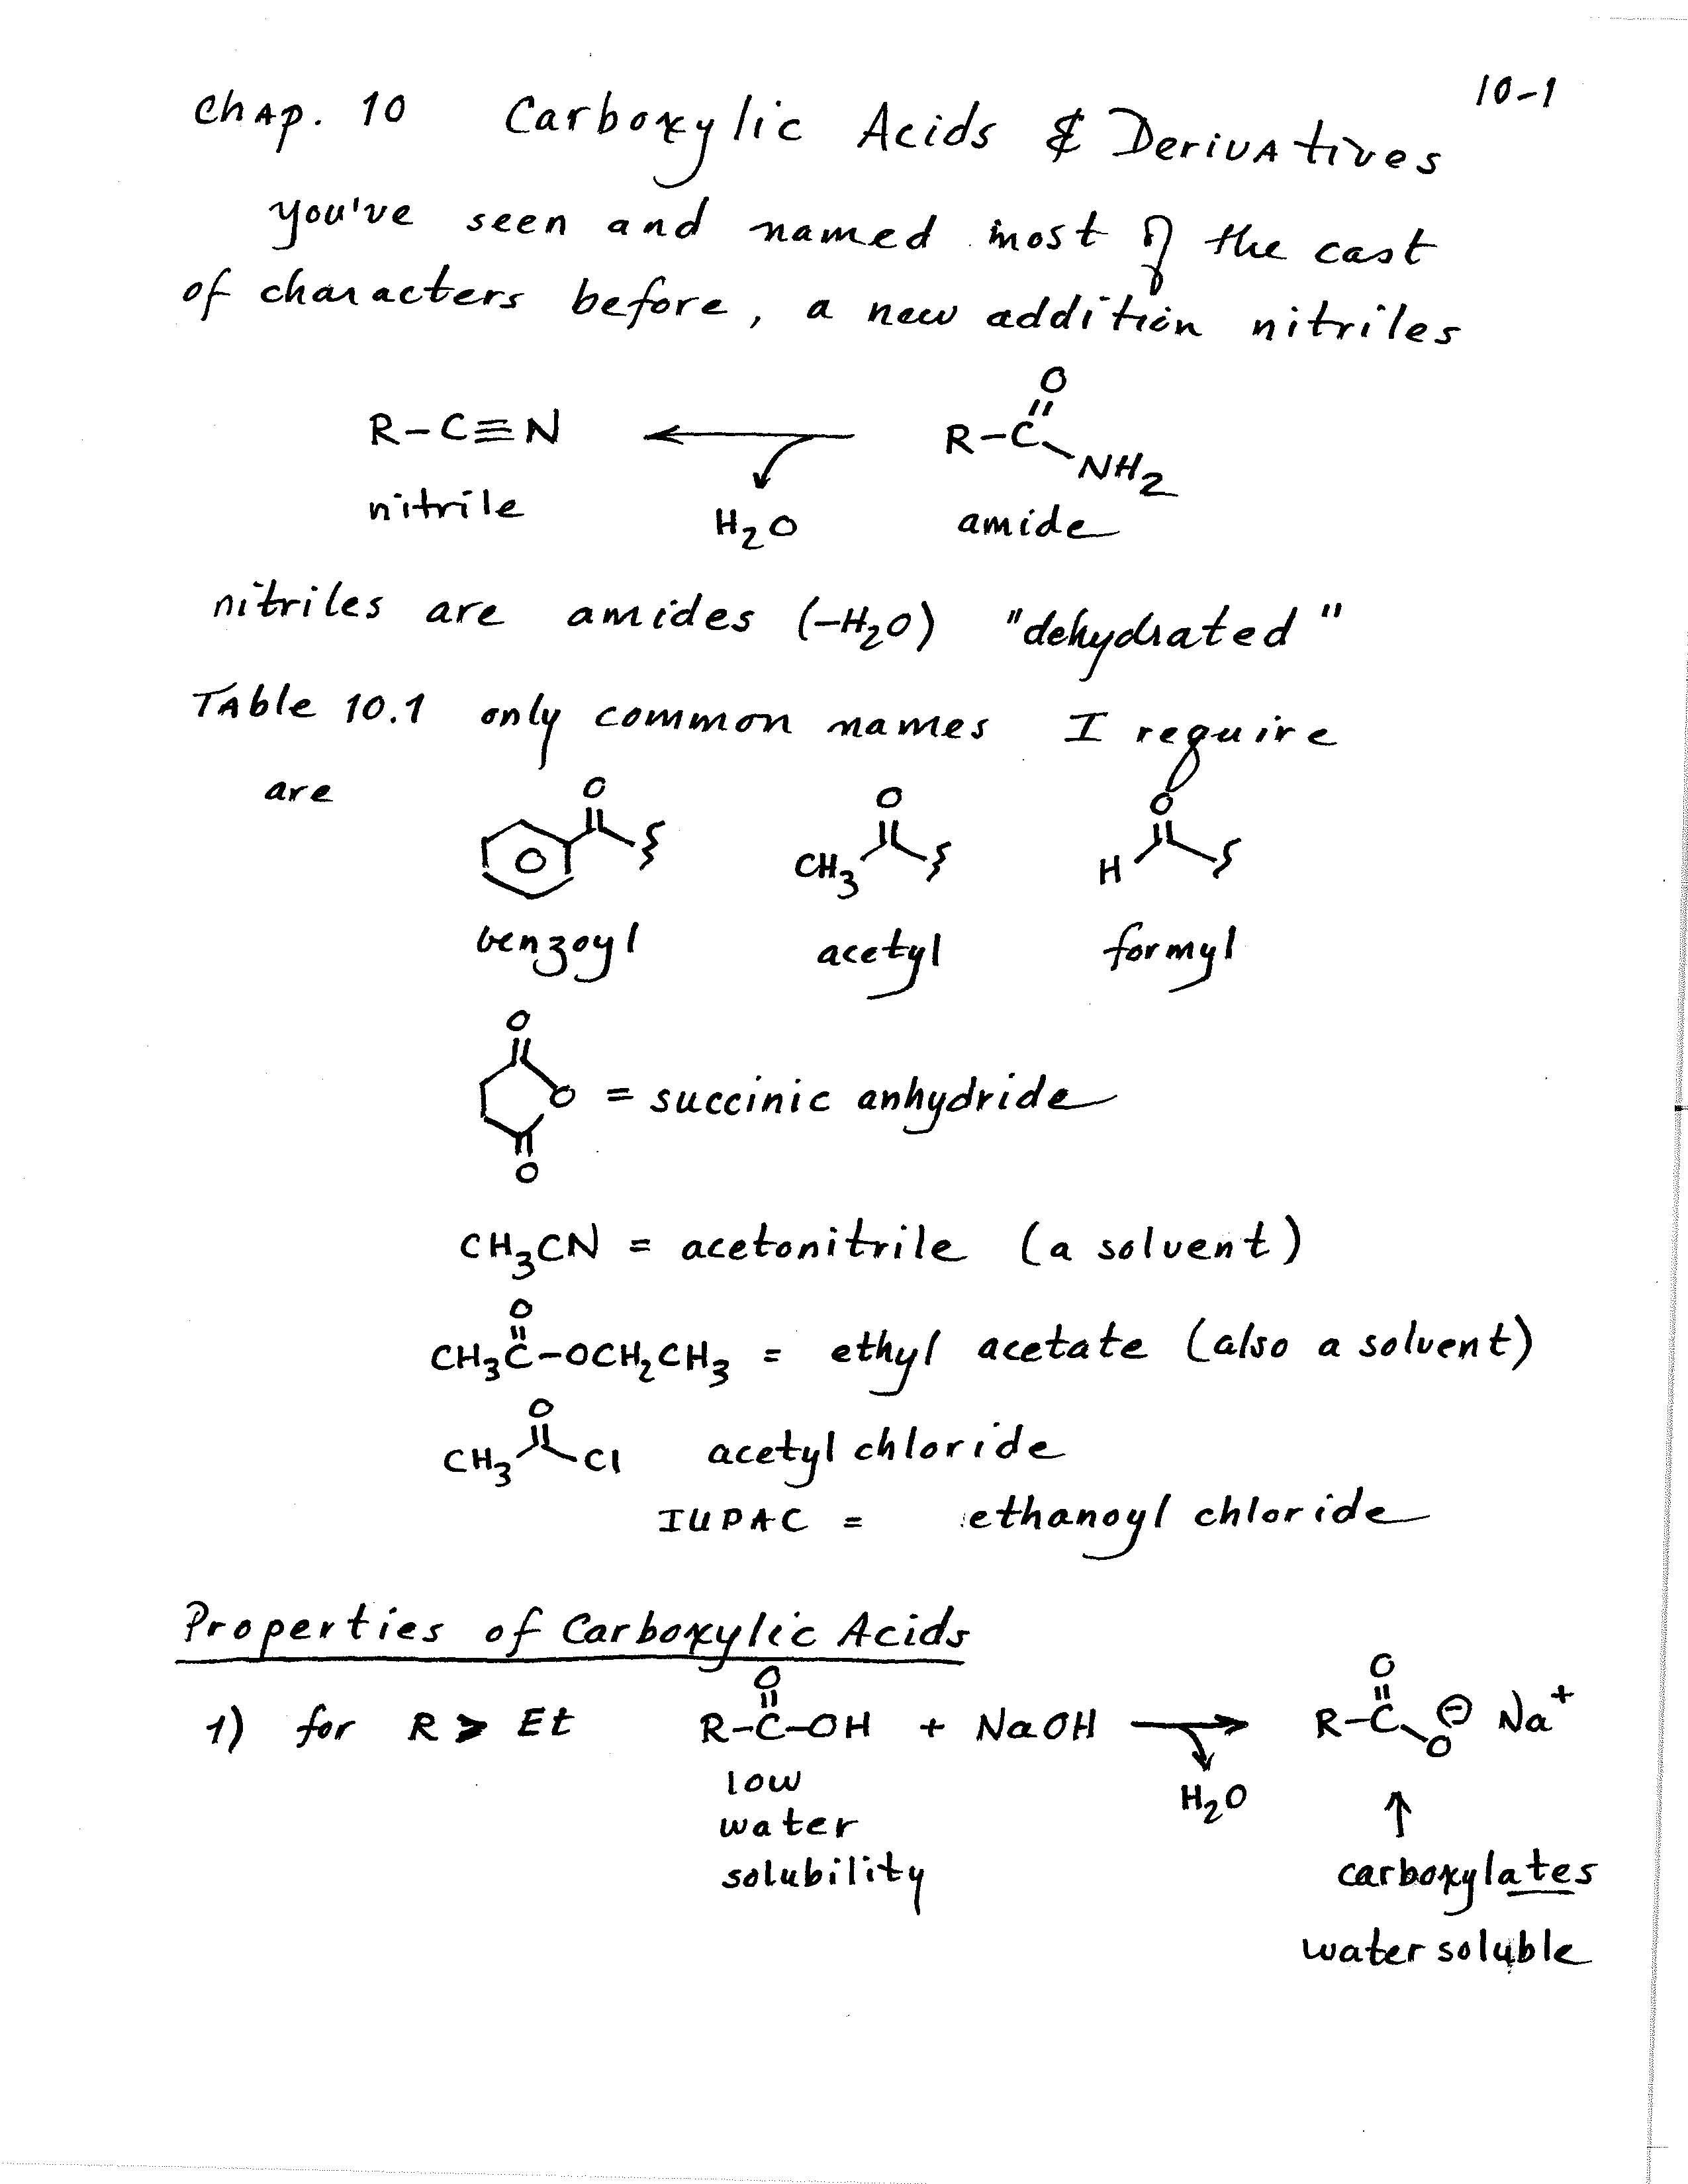 10-1
Chap. 10 Carboxylic Acids & Derivatives
you've seen and named most of the cast
of characters before, a new addition nitriles
O
R-C≡N R-C NH2
nitrile H2O amide
nitriles are amides (-H2O) "dehydrated"
Table 10.1 only common names I require
are
O O O
CH3 H
benzoyl acetyl formyl
O
O = succinic anhydride
O
CH3CN = acetonitrile (a solvent)
O
CH3C-OCH2CH3 = ethyl acetate (also a solvent)
O
CH3 Cl acetyl chloride
IUPAC = ethanoyl chloride
Properties of Carboxylic Acids
O O
1) for R > Et R-C-OH + NaOH → R-C O⊖ Na+
low H2O ↑
water
solubility carboxylates
water soluble